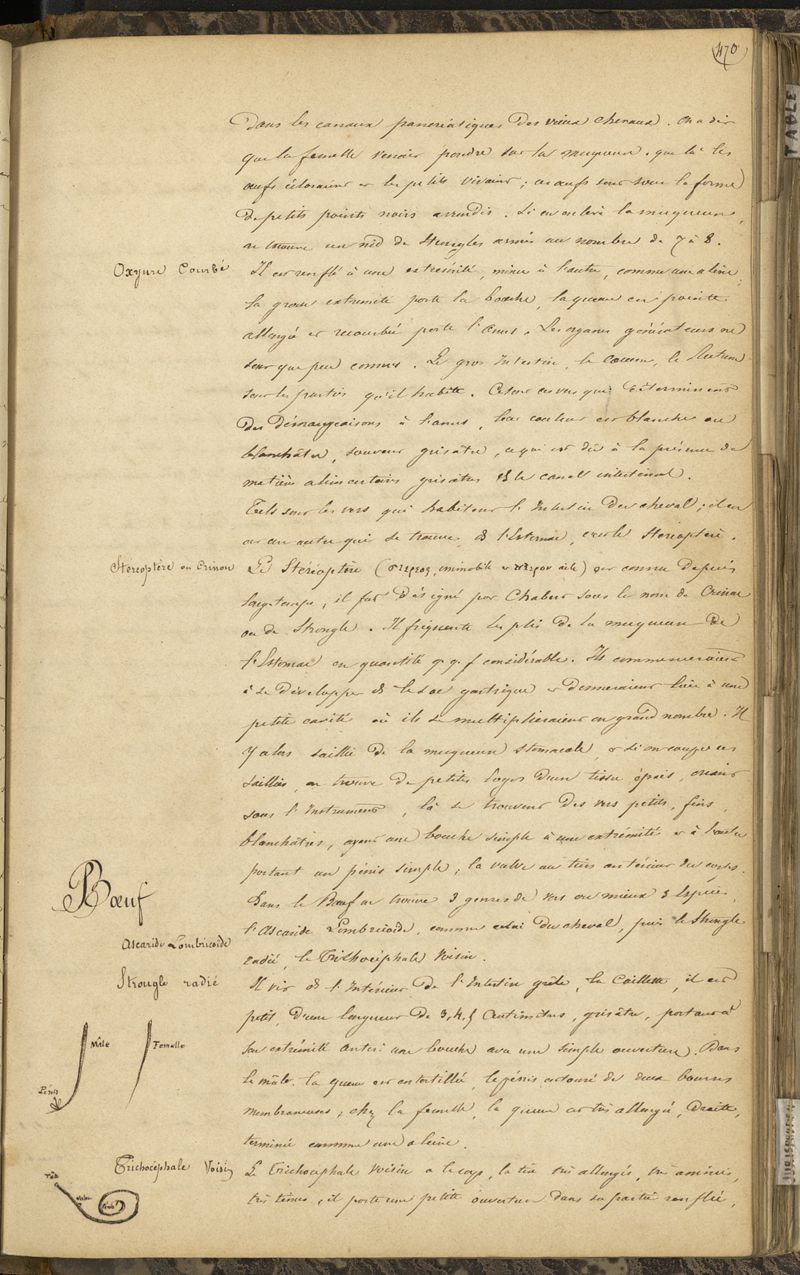 470
TABLE
Dans les canaux pancréatiques des vieux chevaux. On a dit
que la femelle venait pondre sur la muqueuse, que là les
œufs éclosaient et les petits vivaient ; ces œufs sont sous la forme
de petits points noirs arrondis. Si on enlève la muqueuse,
on trouve un nid de Strongles armés au nombre de 7 à 8.
Oxyure Courbé
Il est renflé à une extrémité, mince à l'autre, comme une alène ;
la grosse extrémité porte la bouche, la queue en pointe
allongée et recourbée porte l'anus. Les organes générateurs ne
sont que peu connus. Le gros Intestin, le Cœcum, le Rectum
sont les parties qu'il habite. Ce sont ces vers qui déterminent
des démangeaisons à l'anus, leur couleur est blanche ou
blanchâtre, souvent grisâtre, ce qui est dû à la présence de
matières alimentaires grisâtres ds le canal intestinal.
Tels sont les vers qui habitent l'Intestin du cheval ; il en
est un autre qui se trouve ds l'Estomac, c'est le Stéréoptère.
Stéréoptère ou Crinon
Le Stéréoptère (στερεος, immobile et πτερον aile) est connu depuis
longtemps, il fut désigné par Chabert sous le nom de Crinon
ou de Strongle. Il fréquente les plis de la muqueuse de
l'Estomac en quantité q.q.f considérable. Ils commenceraient
à se développer ds le sac gastrique et donneraient lieu à une
petite cavité où ils se multiplieraient en grand nombre. Il
y a lors saillie de la muqueuse stomacale, et si on coupe ces
saillies, on trouve de petites loges d'un tissu épais, criant
sous l'Instrument, là se trouvent des vers petits, fins,
blanchâtres, ayant une bouche simple à une extrémité et à l'autre
portant un pénis simple ; la vulve au tiers antérieur du corps.
Bœuf
Dans le Bœuf on trouve 3 genres de vers ou mieux 3 espèces,
Ascaride Lombricoïde
l'Ascaride Lombricoïde, comme celui du cheval, puis le Strongle
radié, le Trichocéphale Voisin.
Strongle radié
Il vit ds l'Intérieur de l'Intestin grêle, la Caillette, il est
petit, d'une longueur de 3, 4, 5 Centimètres, grisâtre, portant à
son extrémité antér. une bouche avec une simple ouverture. Dans
le mâle la queue est entortillée, le pénis entouré de deux bourses
membraneuses ; chez la femelle, la queue est très allongée, droite,
terminée comme une alène.
Mâle
Femelle
Pénis
Trichocéphale Voisin
Le Trichocéphale Voisin a le corps, la tête très allongés, très amincis,
très ténus, il porte une petite ouverture dans sa partie renflée,
Tête